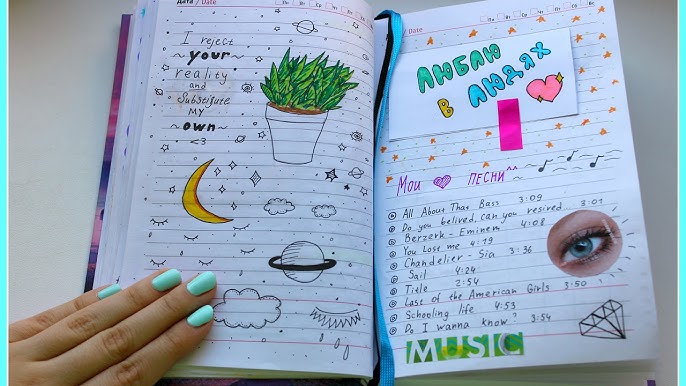 Дата / Date
Пн Вт Ср Чт Пт Сб Вс
I reject
~ your ~
reality
and
Substitute
MY
~ own ~
<3
Date
Пн Вт Ср Чт Пт Сб Вс
ЛЮБЛЮ
В ЛЮДЯХ
Мои песни^^
All About That Bass 3:09
Do you belived, can you resived... 3:01
Berzerk - Eminem 4:08
You Lost me 4:19
Chandelier - Sia 3:36
Sail 4:24
Title 2:54
Last of the American Girls 3:50
Schooling life 4:53
Do I wanna know? 3:54
MUSIC